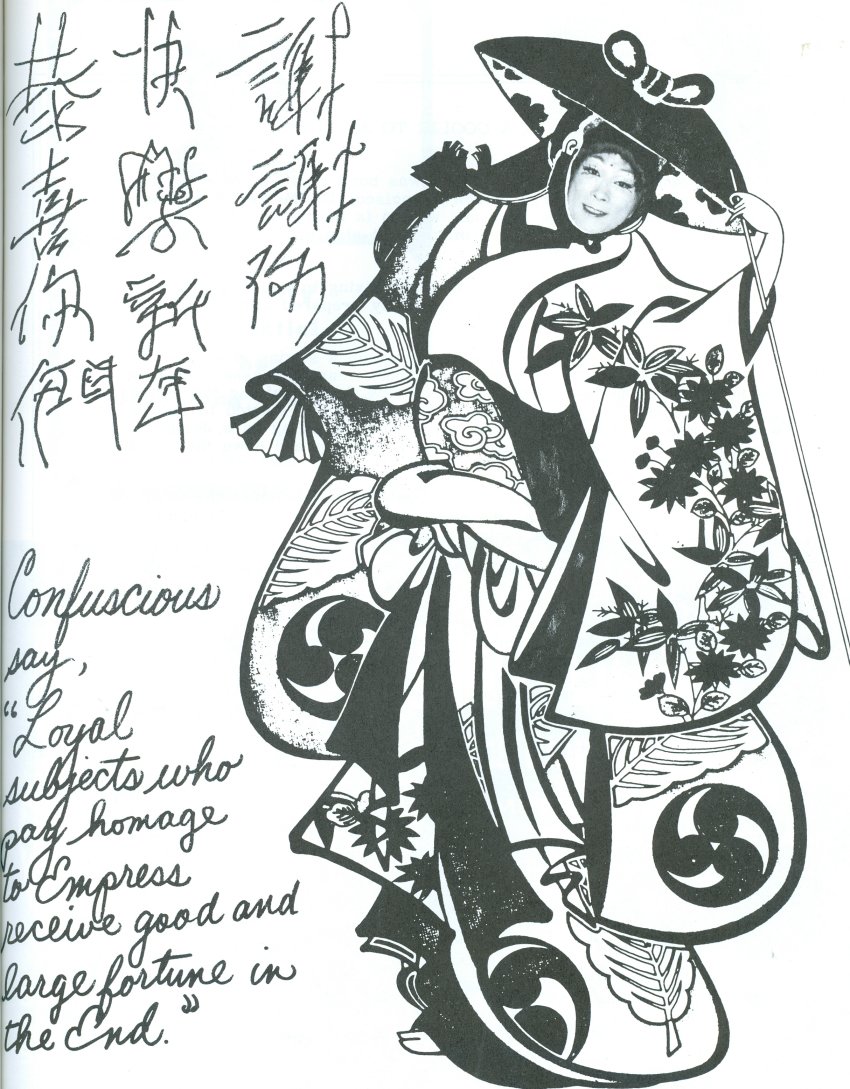 恭喜你們
快樂新年
謝謝你
Confuscious
say,
"Loyal
subjects who
pay homage
to Empress
receive good and
large fortune in
the End."